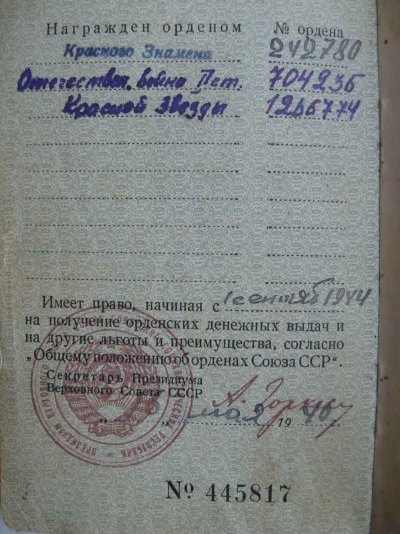 Награжден орденом № ордена
Красного Знамени 242780
Отечествен. война II ст. 704236
Красной Звезды 1266774
Имеет право, начиная с 1 сентяб 1944
на получение орденских денежных выдач и
на другие льготы и преимущества, согласно
„Общему положению об орденах Союза ССР".
Секретарь Президиума
Верховного Совета СССР
А. Горкин
мая 1946 г.
№ 445817